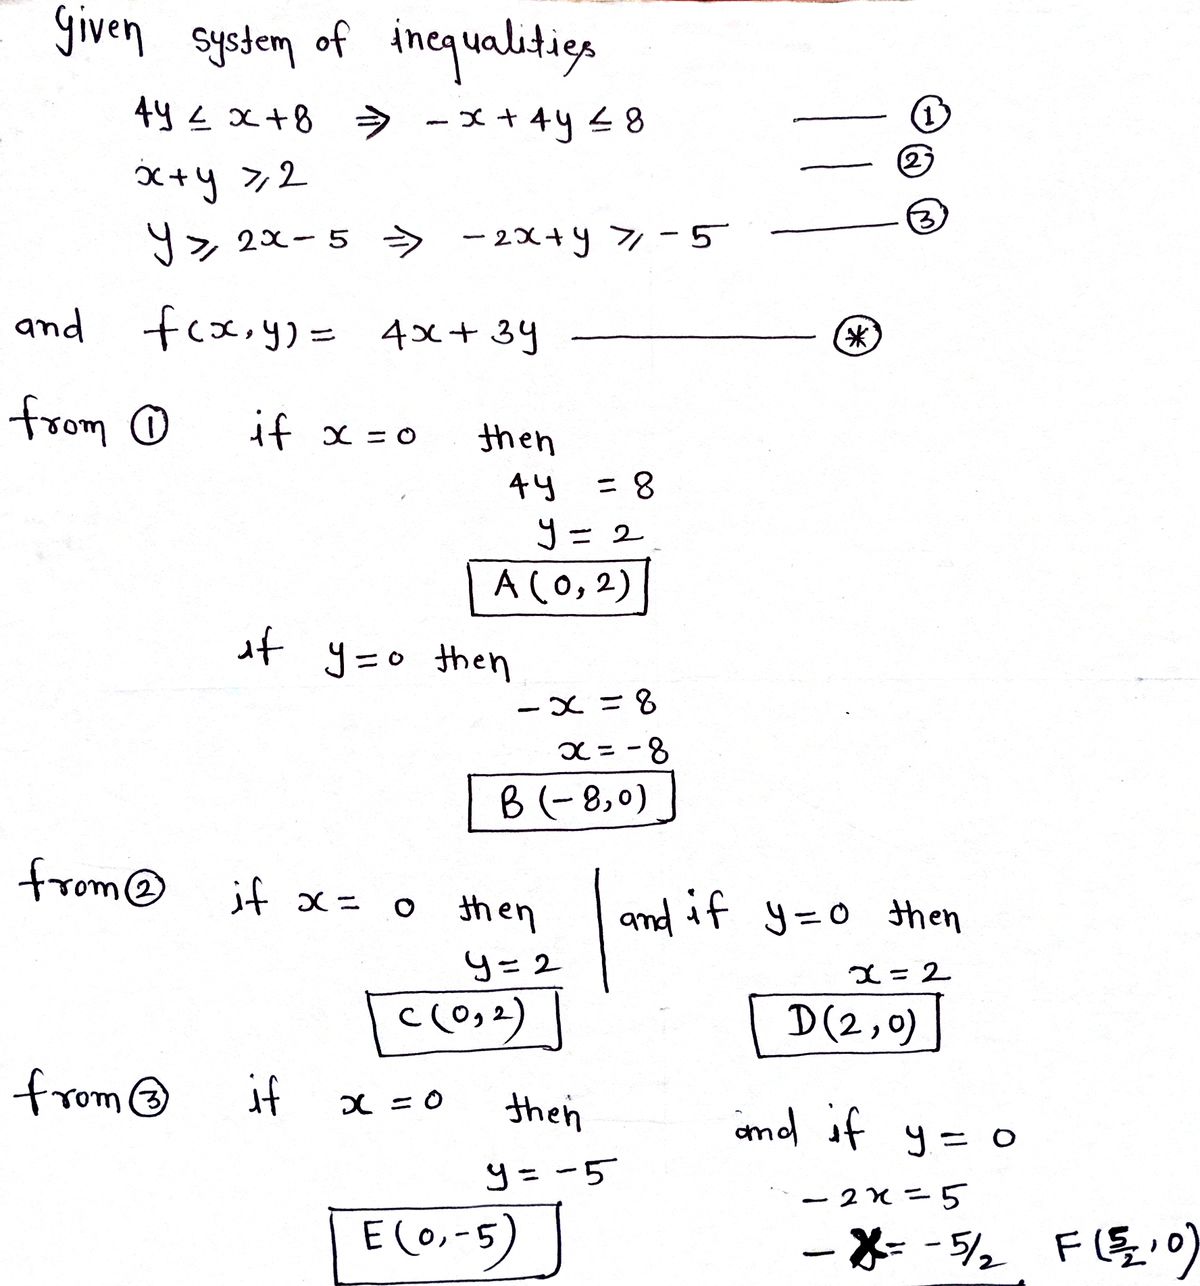 Given system of inequalities
4y ≤ x+8 ⇒ -x + 4y ≤ 8 —— ①
x+y ≥ 2 —— ②
y ≥ 2x-5 ⇒ -2x+y ≥ -5 —— ③
and f(x,y) = 4x + 3y —— ⊛
from ① if x = 0 then
4y = 8
y = 2
A(0,2)
if y=0 then
-x = 8
x = -8
B(-8,0)
from② if x = 0 then | and if y=0 then
y = 2 x = 2
C(0,2) D(2,0)
from③ if x = 0 then and if y = 0
y = -5 -2x = 5
E(0,-5) - x = -5/2 F(5/2,0)